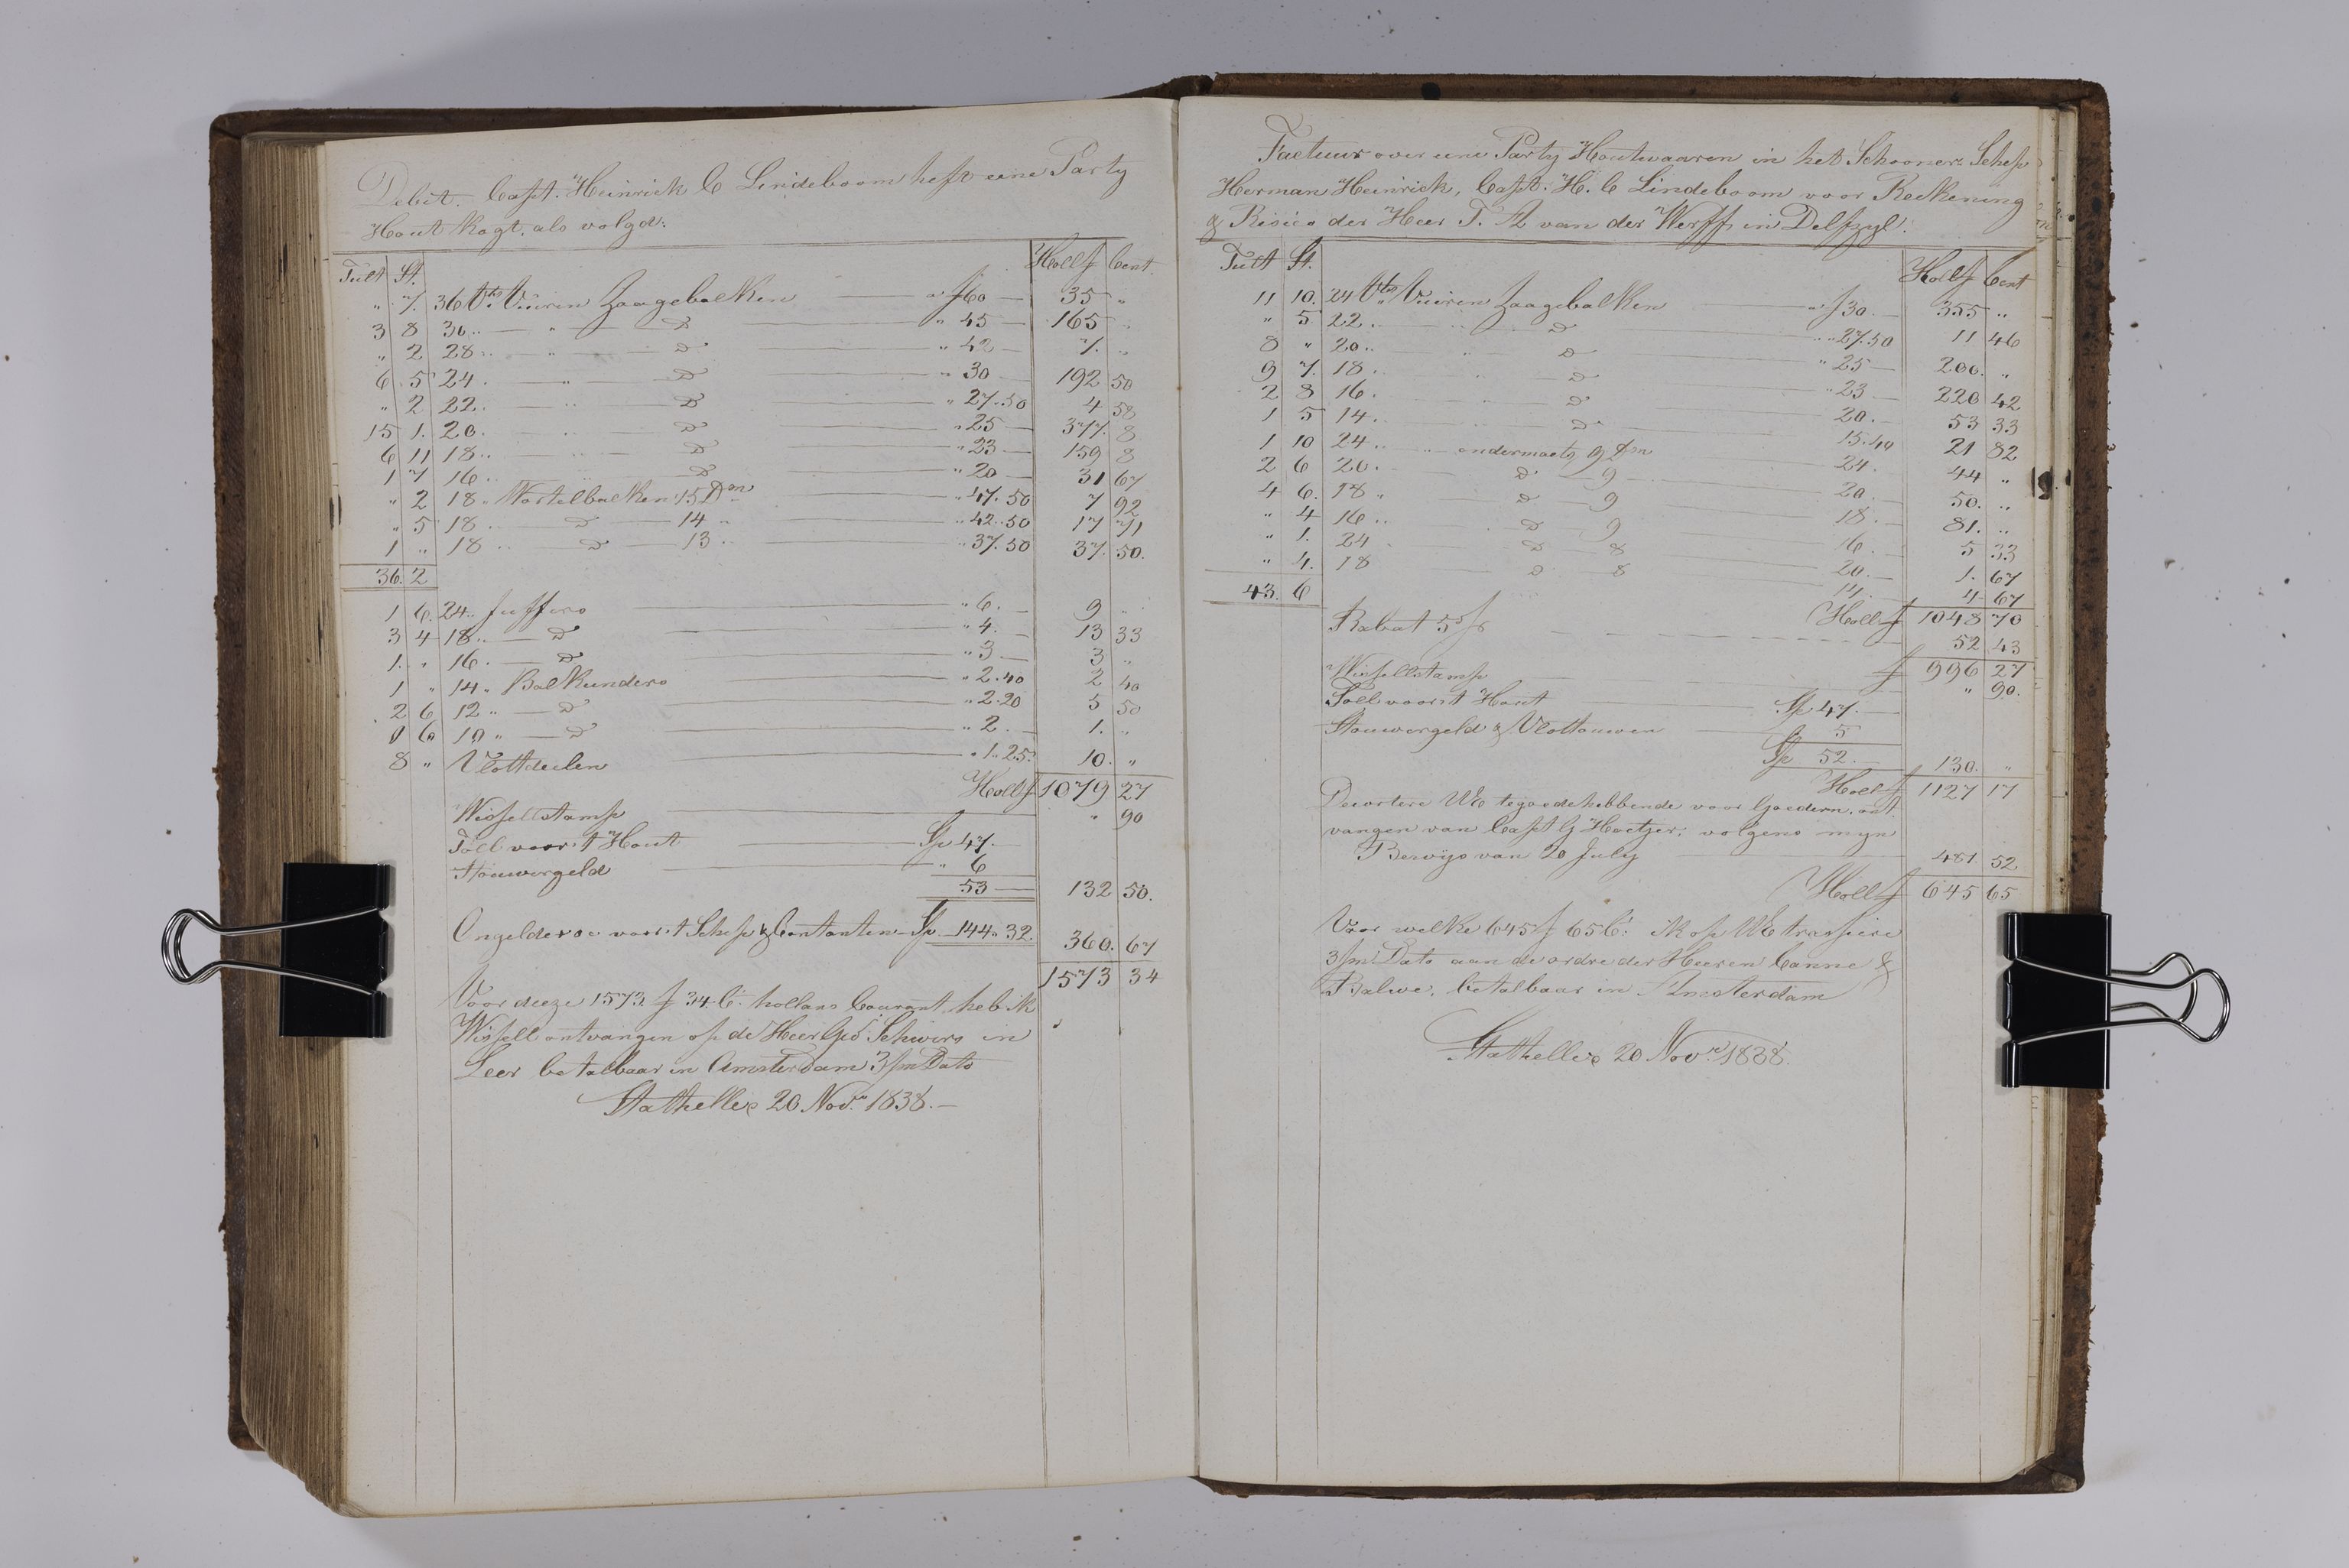 Debet. Capt. Heinrich C Lindeboom heft eene Party
Hout kogt. als volgd:
Tult St. Hollf Cent.
" 7. 36 Vts Vüüren Zaagebalken " f60 — 35 "
3 8 30 " — " — Do — " 45 — 165 "
" 2 28 " — " — Do — " 42 — 7. "
6 5 24 . — " — Do — " 30 — 192 50
" 2 22 . — " — Do — " 27.50 4 58
15 1. 20 . — " — Do — " 25 — 377. 8
6 11 18 " — " — Do — " 23 — 159 8
1 7 16 " — " — Do — " 20 — 31 67
" 2 18 " Wortelbalken 15 Dm — " 47.50 7 92
" 5 18 . — Do — 14 " — " 42.50 17 71
1 " 18 " — Do — 13 " — " 37.50 37. 50.
36. 2
1 6. 24 " Juffers — " 6. — 9 "
3 4 18 " — Do — " 4. — 13 33
1. " 16 . — Do — " 3 — 3 "
1 " 14 " Balkunders — " 2.40 2 40
2 6 12 " — Do — " 2.20 5 50
" 6 10 " — Do — " 2 — 1. "
8 " Vlottdeelen — " 1.25. 10. "
Hollf 1079 27
Wissellstamp — " 90
Toll voor 't Hout — Sp 47. —
Stouwergeld — " 6
53 — 132 50.
Ongelder voor 't Schep & Contanten — Sp. 144 " 32. 360. 67
1573 34
Voor deeze 1573 f 34 C. hollans Courant heb ik
Wissell ontvangen op de Heer Schwers in
Leer betalbaar in Amsterdam 3/m Dato
Stathelle 20 Novr. 1838. —
Factuur over eene Party Houtwaaren in het Schooner Schep
Herman Heinrich, Capt. H. C Lindeboom voor Reekening
& Risico der Heer T. A van der Werff in Delfzyl.
Tult St. Hollf Cent
11 10. 24 Vts Vüüren Zaagebalken — " f30. — 355 "
" 5 22 . — " — Do — " 27.50 11 46
8 " 20 " — " — Do — " 25 — 200. "
9 7. 18 . — " — Do — " 23 — 220 42
2 8 16 . — " — Do — 20. — 53 33
1 5 14 . — " — Do — 15.40 21 82
1 10 24 " — " ondermaets 9 Dm — 24. 44 "
2 6 20 . — Do — 9 — 20. — 50. "
4 6. 18 " — Do — 9 — 18. — 81. "
" 4 16 " — Do — 9 — 16. — 5 33
" 1. 24 — Do — 8 — 20. — 1. 67
" 4. 18 — Do — 8 — 14. — 4 67
43. 6 Hollf 1048 70
Rabat 5 — 52 43
f 996 27
Wissellstamp — " 90.
Toll voor 't Hout — Sp 47. —
Stouwergeld & Vlottouwen — 5
Sp 52. — 130. "
Hollf 1127 17
Decortere UE tegoedehebbende voor Goedern, ont
vangen van Capt G Hoetjer, volgens myn
Bewys van 20 July — 481. 52
Hollf 645 65
Voor welke 645 f 65 C. ik op UE trassiere
3/m Dato aan de ordre der Heeren Canne &
Balwe, betalbaar in Amsterdam
Stathelle 20 Novr 1838.